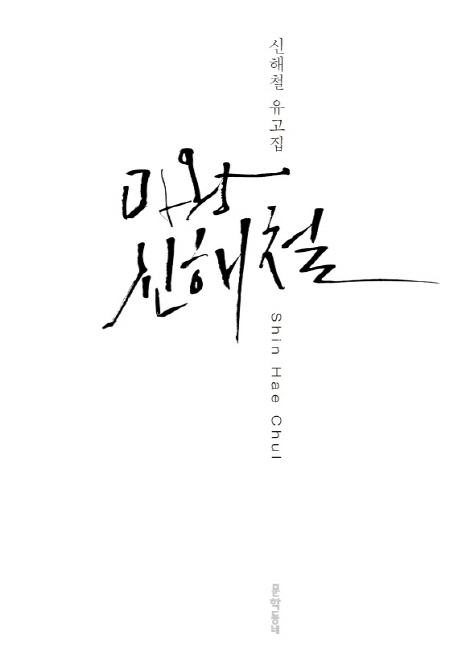 신해철 유고집
마왕
신해철
Shin Hae Chul
문학동네